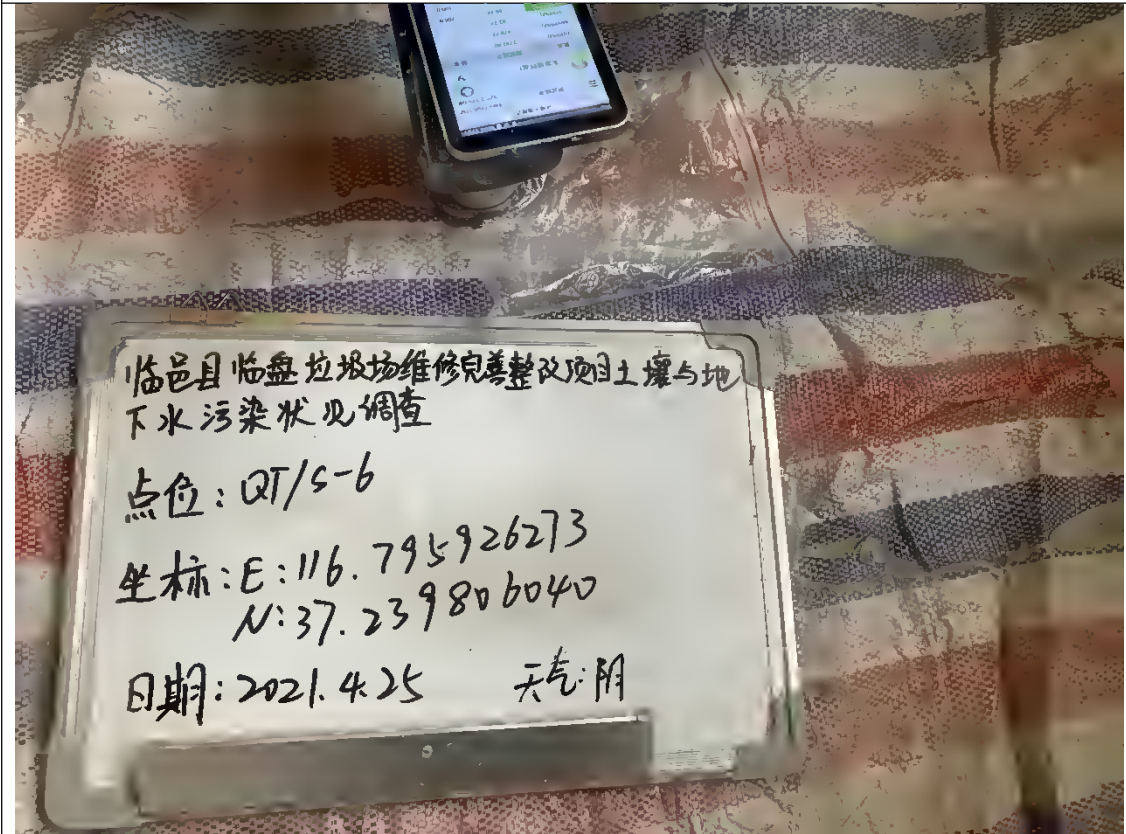 临邑县临盘垃圾场维修完善整改项目土壤与地
下水污染状况调查
点位:QT/S-6
坐标:E:116.795926273
N:37.239806040
日期:2021.4.25 天气:阴